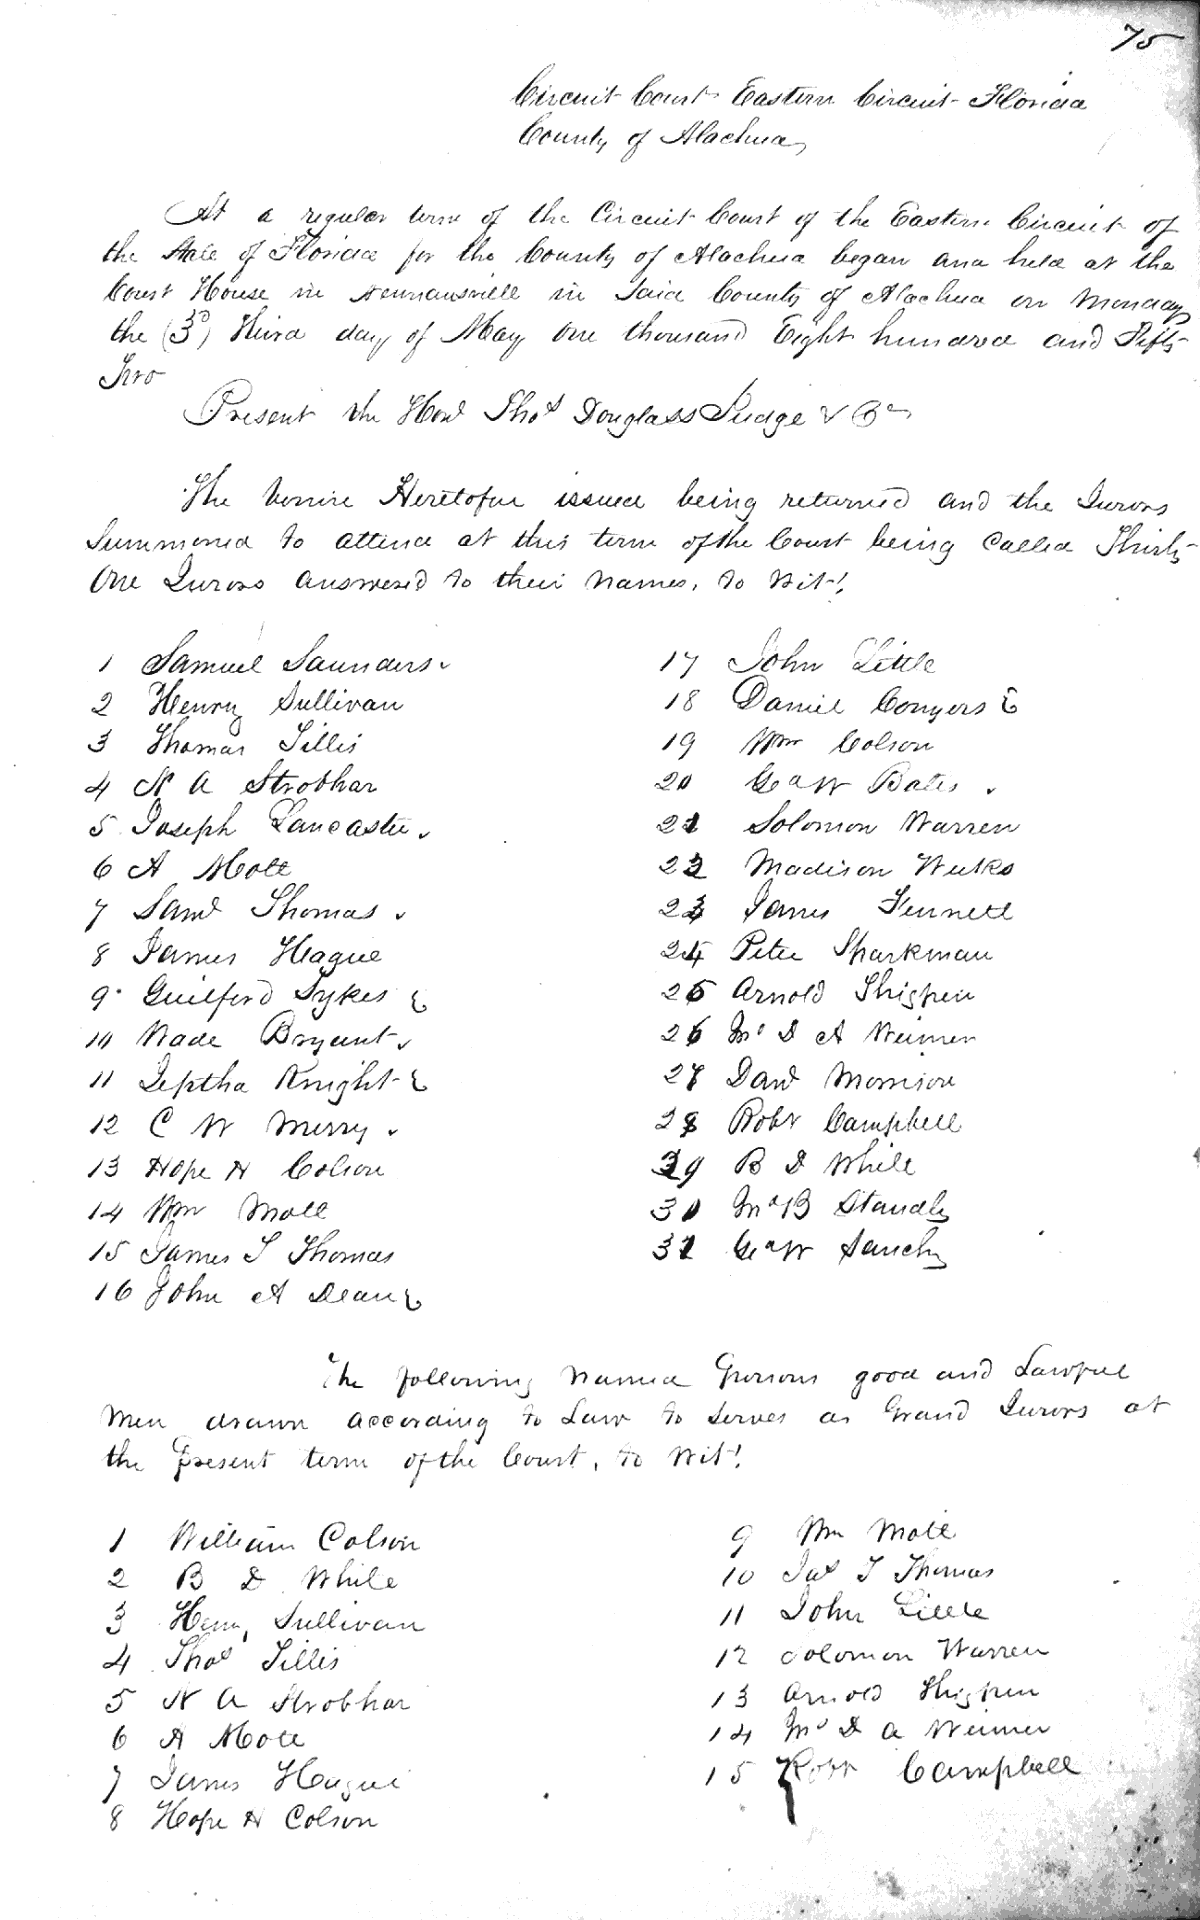 75
Circuit Court Eastern Circuit Florida
County of Alachua
At a regular term of the Circuit Court of the Eastern Circuit of
the State of Florida for the County of Alachua began and held at the
Court House in Newnansville in Said County of Alachua on Monday
the (3d) Third day of May One thousand Eight hundred and Fifty
Two
Present the Honl Thos Douglass Judge & C
The Venire Heretofore issued being returned and the Jurors
Summoned to attend at this term of the Court being Called Thirty
One Jurors answered to their names, to Wit!
1 Samuel Saunders
2 Henry Sullivan
3 Thomas Tillis
4 N A Strobhar
5 Joseph Lancaster
6 A Mott
7 Saml Thomas
8 James Hague
9 Guilford Sykes
10 Wade Bryant
11 Jeptha Knight
12 C W Merry
13 Hope H Colson
14 Wm Mott
15 James T Thomas
16 John A Dean
17 John Little
18 Daniel Conyers
19 Wm Colson
20 Geo W Bates
21 Solomon Warren
22 Madison Weeks
23 James Fennell
24 Peter Sparkman
25 Arnold Thigpen
26 Mc D A Weimer
27 Davd Morrison
28 Robt Campbell
29 B D White
30 Standly
31 Geo W Sanchy
The following named Persons good and Lawful
Men drawn according to Law to Serves as Grand Jurors at
the Present term of the Court, to Wit!
1 William Colson
2 B D White
3 Henry Sullivan
4 Thos Tillis
5 N A Strobhar
6 A Mott
7 James Hague
8 Hope H Colson
9 Wm Mott
10 Jas T Thomas
11 John Little
12 Solomon Warren
13 Arnold Thigpen
14 Mc D A Weimer
15 Robt Campbell